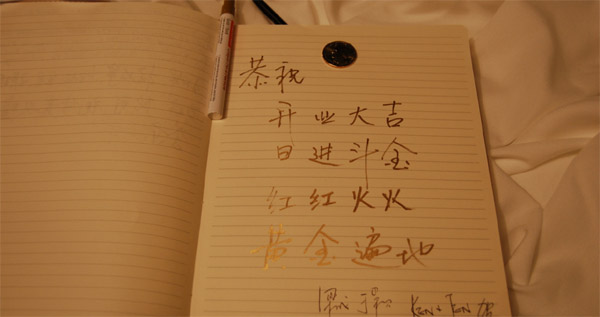 恭祝
开业大吉
日进斗金
红红火火
黄金遍地